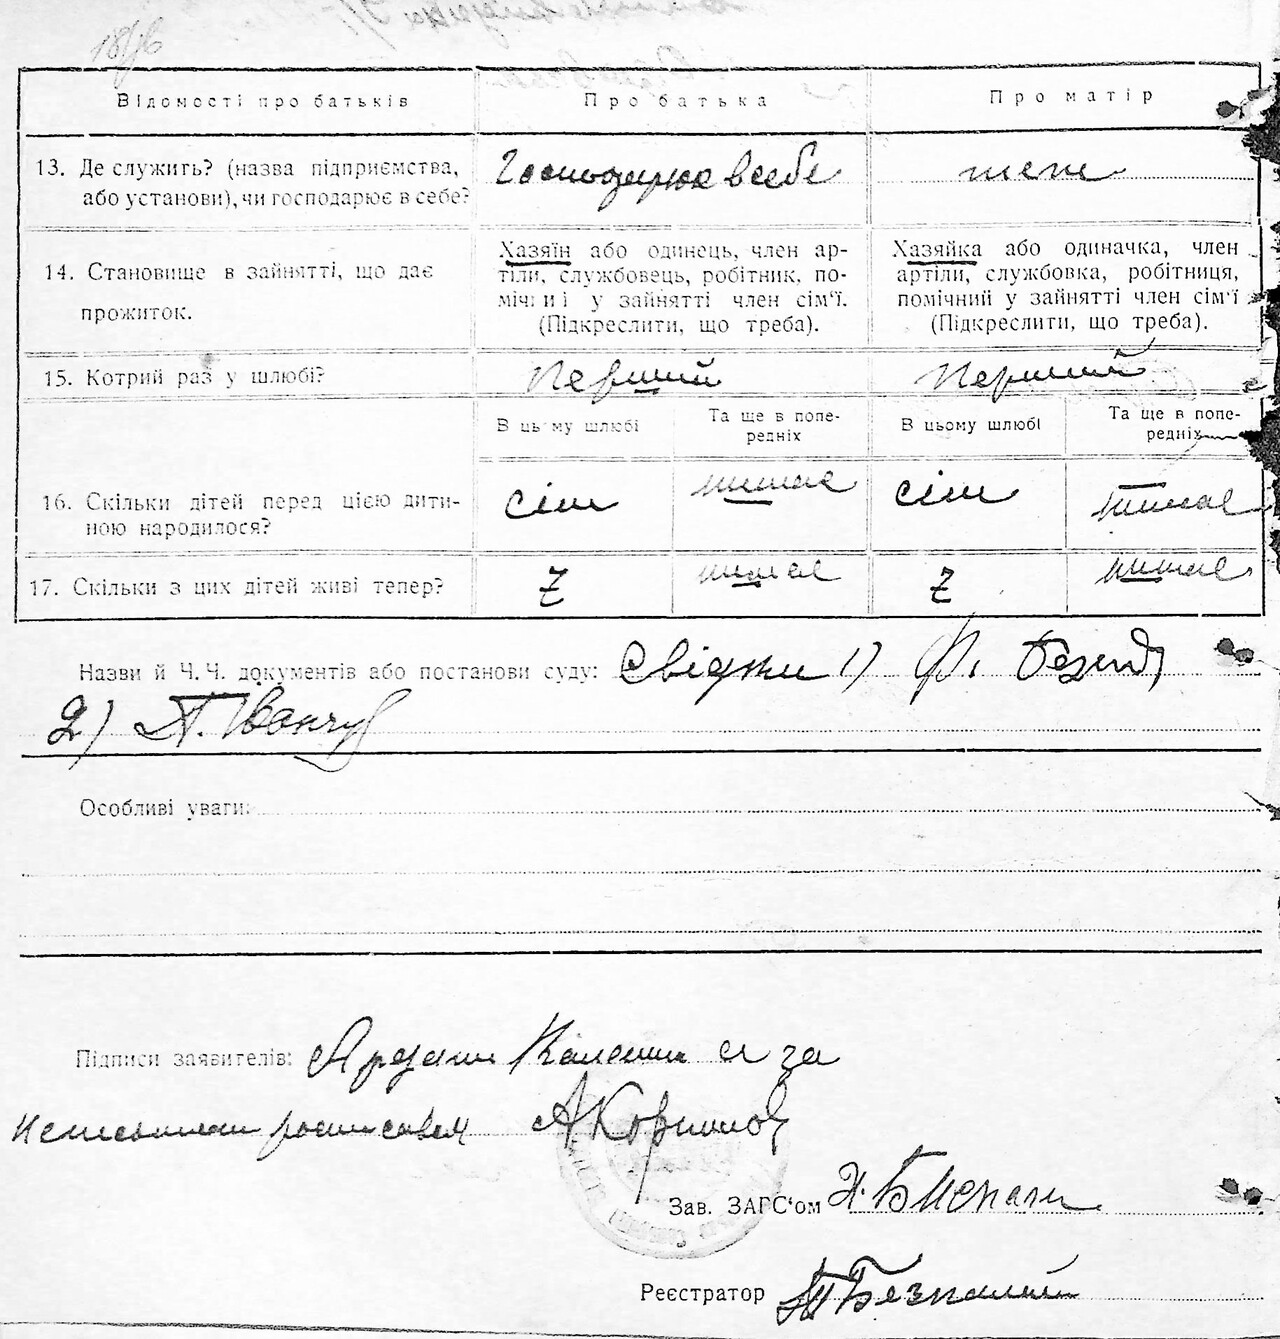 Відомості про батьків
Про батька
Про матір
13. Де служить? (назва підприємства,
або установи), чи господарює в себе?
Господарює в себе
теж
14. Становище в зайнятті, що дає
прожиток.
Хазяїн або одинець, член ар-
тіли, службовець, робітник, по-
мічний у зайнятті член сім'ї.
(Підкреслити, що треба).
Хазяйка або одиначка, член
артіли, службовка, робітниця,
помічний у зайнятті член сім'ї
(Підкреслити, що треба).
15. Котрий раз у шлюбі?
Перший
Перший
В цьому шлюбі
Та ще в попе-
редніх
В цьому шлюбі
Та ще в попе-
редніх
16. Скільки дітей перед цією дити-
ною народилося?
сім
немає
сім
немає
17. Скільки з цих дітей живі тепер?
7
немає
7
немає
Назви й Ч.Ч. документів або постанови суду: Свідки 1) Ф.
2) П. Іванчу
Особливі уваги:
Підписи заявителів: за
росписався А
Зав. ЗАГС'ом
Реєстратор Безпалий